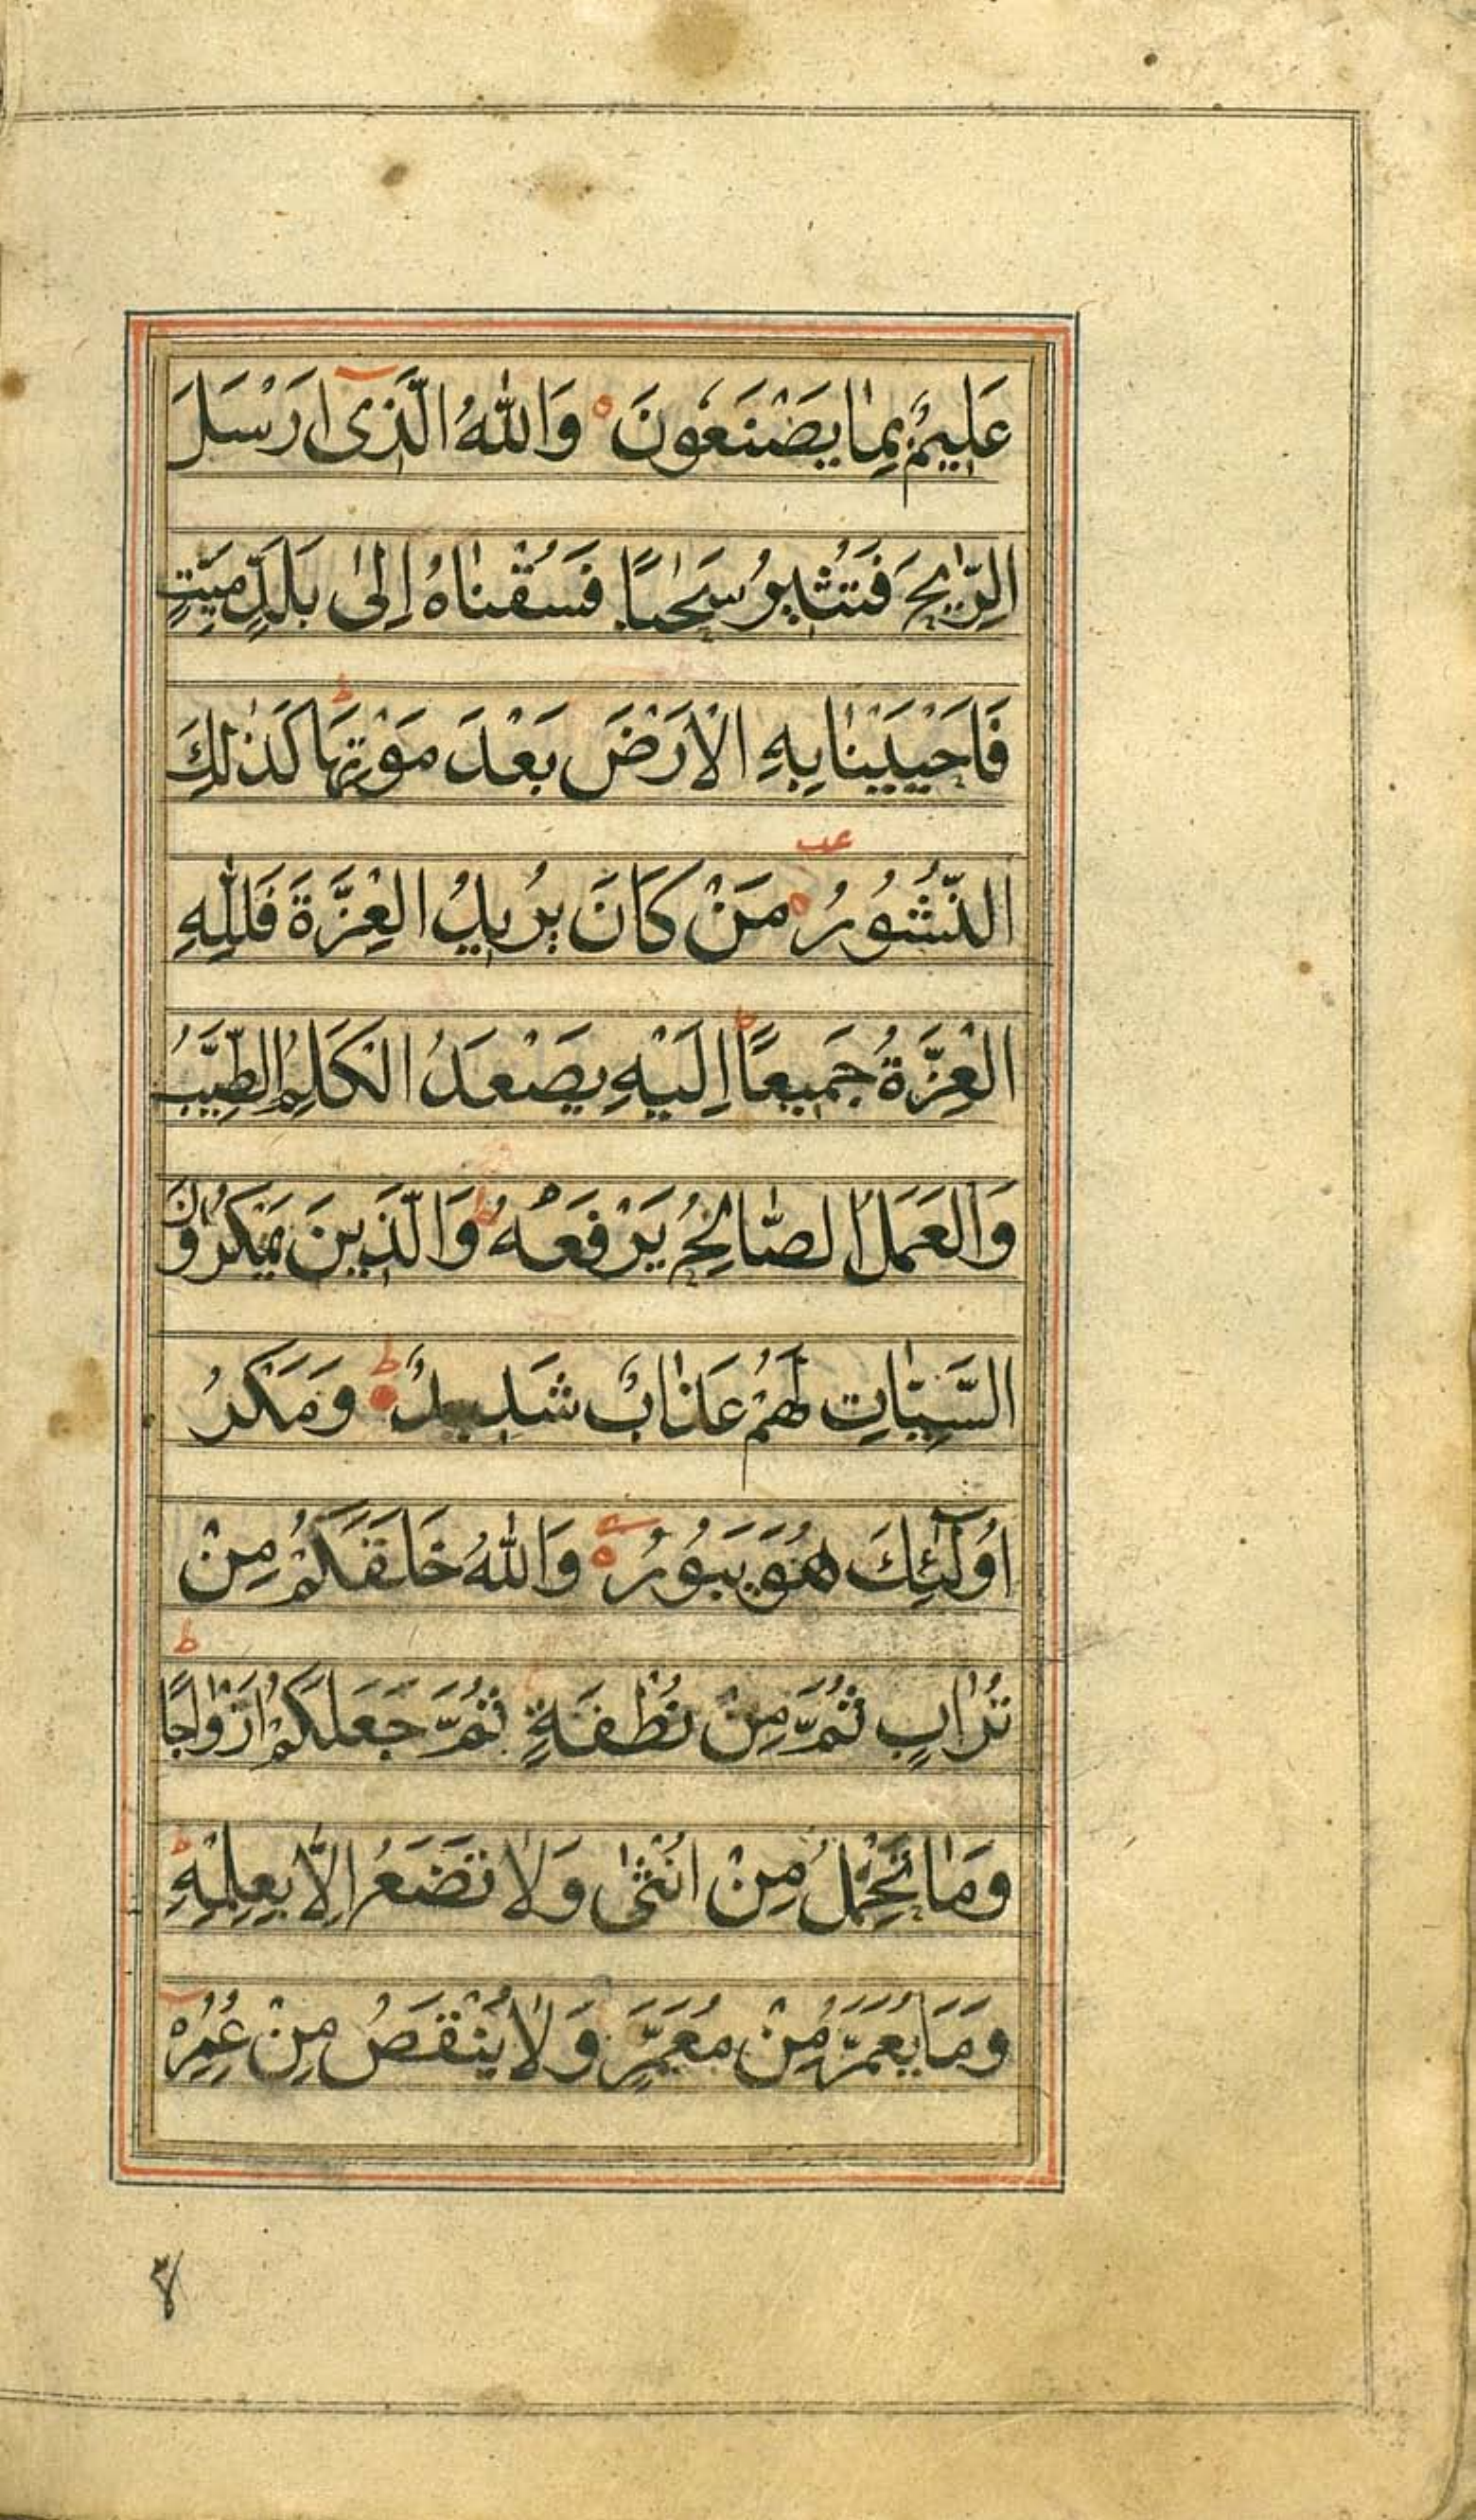 عَلِيمٌ بِمٰا يَصْنَعُونَ ۝ وَاللّٰهُ الَّذَىٓ اَرَسْسَلَ
الرِّيٰحَ فَتُثيرُ سَحٰباً فَسُقْنٰاهُ اِلىٰ بَلَدٍ مَيِّتٍ
فَاَحْيَيْنٰا بِهِ الْاَرْضَ بَعْدَ مَوْتِهَا ط كَذٰلِكَ
النُّشُورُ ۝ عب مَنْ كَانَ يُريدُ الْعِزَّةَ فَلِلّٰهِ
الْعِزَّةُ جَميعًا ط اِلَيْهِ يَصْعَدُ الْكَلِمُ الطَّيِّبُ
وَالْعَمَلُ الصّٰالِحُ يَرْفَعُهُ ط وَالَّذينَ يَمْكُرُونَ
السَّيِّئاٰتِ لَهُمْ عَذٰابٌ شَديدٌ ط وَمَكْرُ
اُولٰٓئِكَ هُوَ يَبُورُ ۝ وَاللّٰهُ خَلَقَكُمْ مِنْ
تُرٰابٍ ثُمَّ مِنْ نُطْفَةٍ ثُمَّ جَعَلَكُمْ اَزْوٰاجًا ط
وَمٰا تَحْمِلُ مِنْ اُنْثىٰ وَلاٰ تَضَعُ اِلّٰا بِعِلْمِهِ ط
وَمَا يُعَمَّرُ مِنْ مُعَمَّرٍ وَلاٰ يُنْقَصُ مِنْ عُمُرِهِ